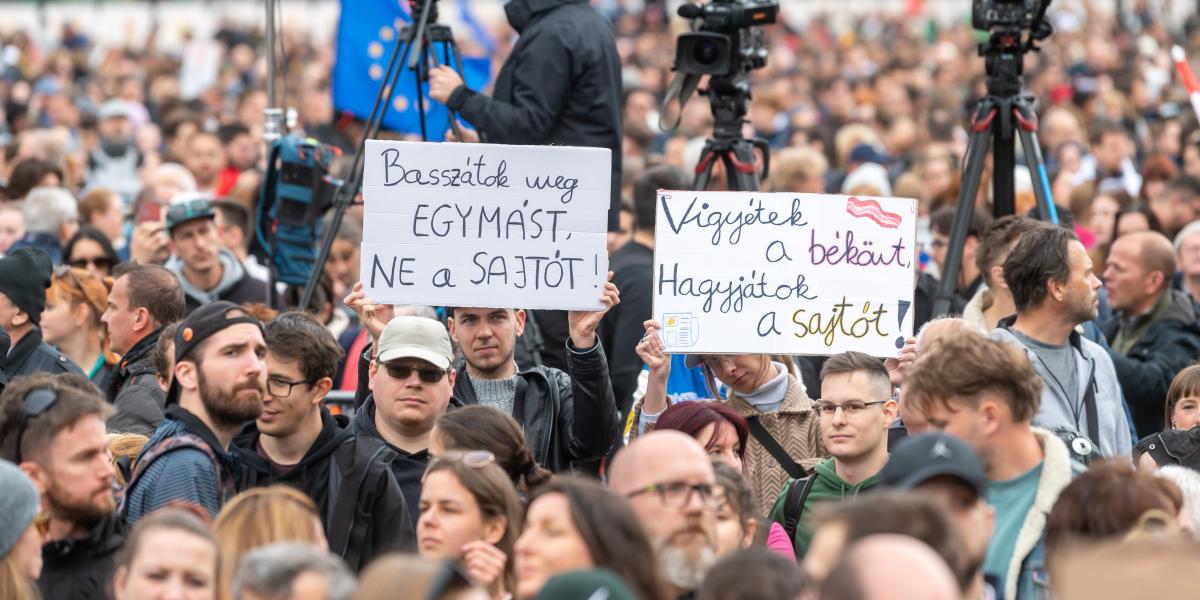 Basszátok meg
EGYMÁST,
NE a SAJTÓT!
Vigyétek
a békávt,
Hagyjátok
a sajtót!